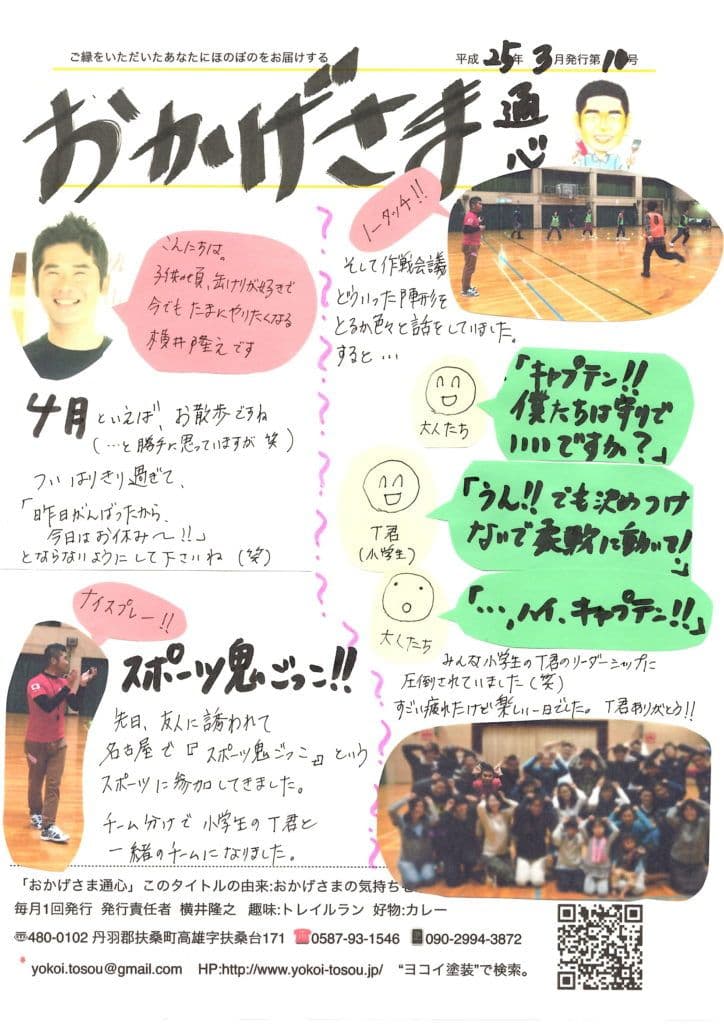 ご縁をいただいたあなたにほのぼのをお届けする
平成25年3月発行第10号
おかげさま
通心
こんにちは。
子供の頃、缶けりが好きで
今でも たまにやりたくなる
横井隆之です
4月といえば、お散歩ですね
(…と勝手に思っていますが 笑)
ついはりきり過ぎて、
「昨日がんばったから、
今日はお休み〜!!」
とならないようにして下さいね(笑)
ナイスプレー!!
スポーツ鬼ごっこ!!
先日、友人に誘われて
名古屋で『スポーツ鬼ごっこ』という
スポーツに参加してきました。
チーム分けで 小学生のT君と
一緒のチームになりました。
ノータッチ!!
そして作戦会議
どういった陣形を
とるか色々と話をしていました。
すると…
「キャプテン!!
僕たちは守りで
いいですか?」
大人たち
「うん!!でも決めつけ
ないで柔軟に動いて!」
T君
(小学生)
「…、ハイ、キャプテン!!」
大人たち
みんな小学生のT君のリーダーシップに
圧倒されていました(笑)
すごい疲れたけど楽しい一日でした。T君ありがとう!!
「おかげさま通心」このタイトルの由来:おかげさまの気持ち
毎月1回発行 発行責任者 横井隆之 趣味:トレイルラン 好物:カレー
〒480-0102 丹羽郡扶桑町高雄字扶桑台171 ☎0587-93-1546 090-2994-3872
yokoi.tosou@gmail.com HP:http://www.yokoi-tosou.jp/ “ヨコイ塗装”で検索。